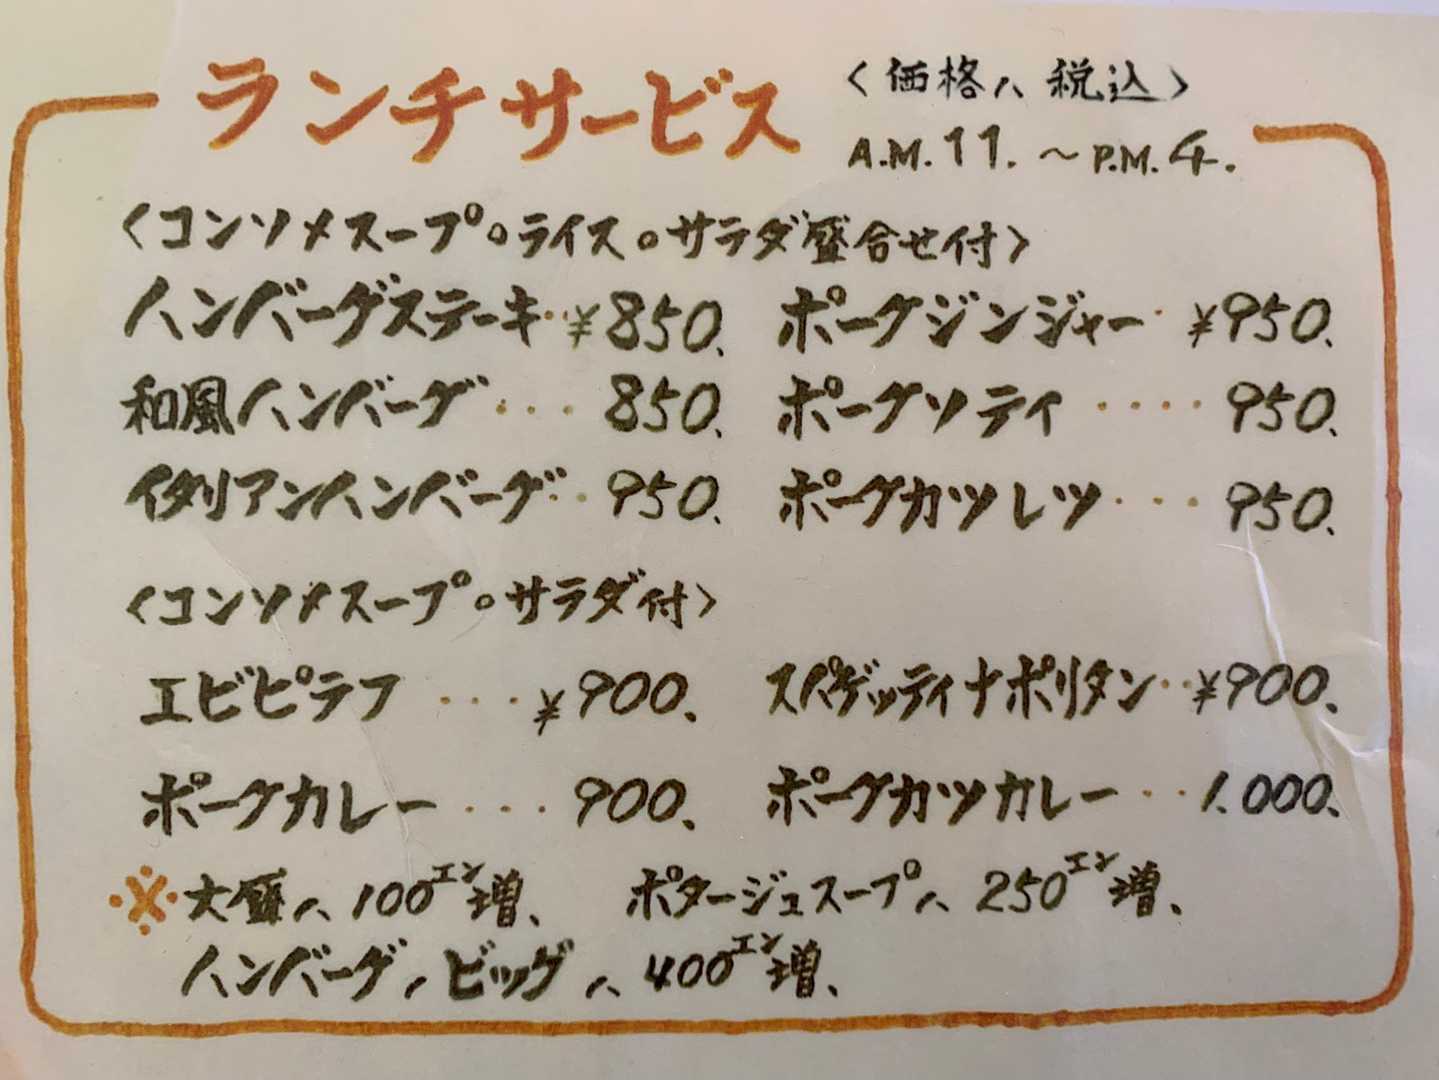 ランチサービス
〈価格ハ税込〉
A.M.11.〜P.M.4.
〈コンソメスープ。ライス。サラダ盛合せ付〉
ハンバーグステーキ・¥850. ポークジンジャー・¥950.
和風ハンバーグ・・・・850. ポークソティ・・・・950.
イタリアンハンバーグ・・950. ポークカツレツ・・・・950.
〈コンソメスープ。サラダ付〉
エビピラフ・・・・¥900. スパゲッティナポリタン・・¥900.
ポークカレー・・・・900. ポークカツカレー・・・1.000.
※大盛ハ100エン増、 ポタージュスープハ250エン増、
ハンバーグノビッグハ400エン増、